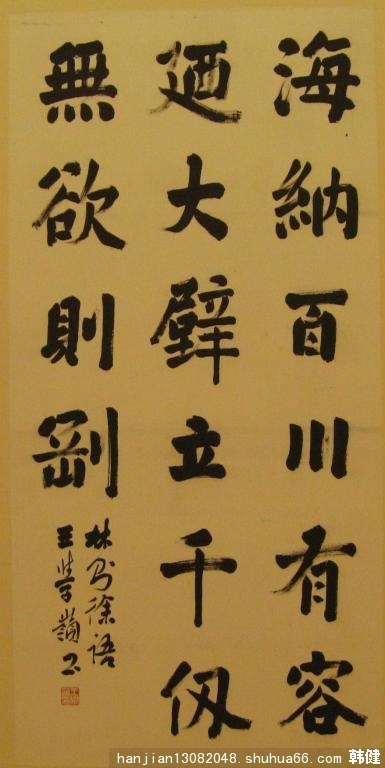 海納百川有容
廼大壁立千仭
無欲則剛
林则徐語
王學嶺书
hanjian13082048.shuhua66.com 韩健